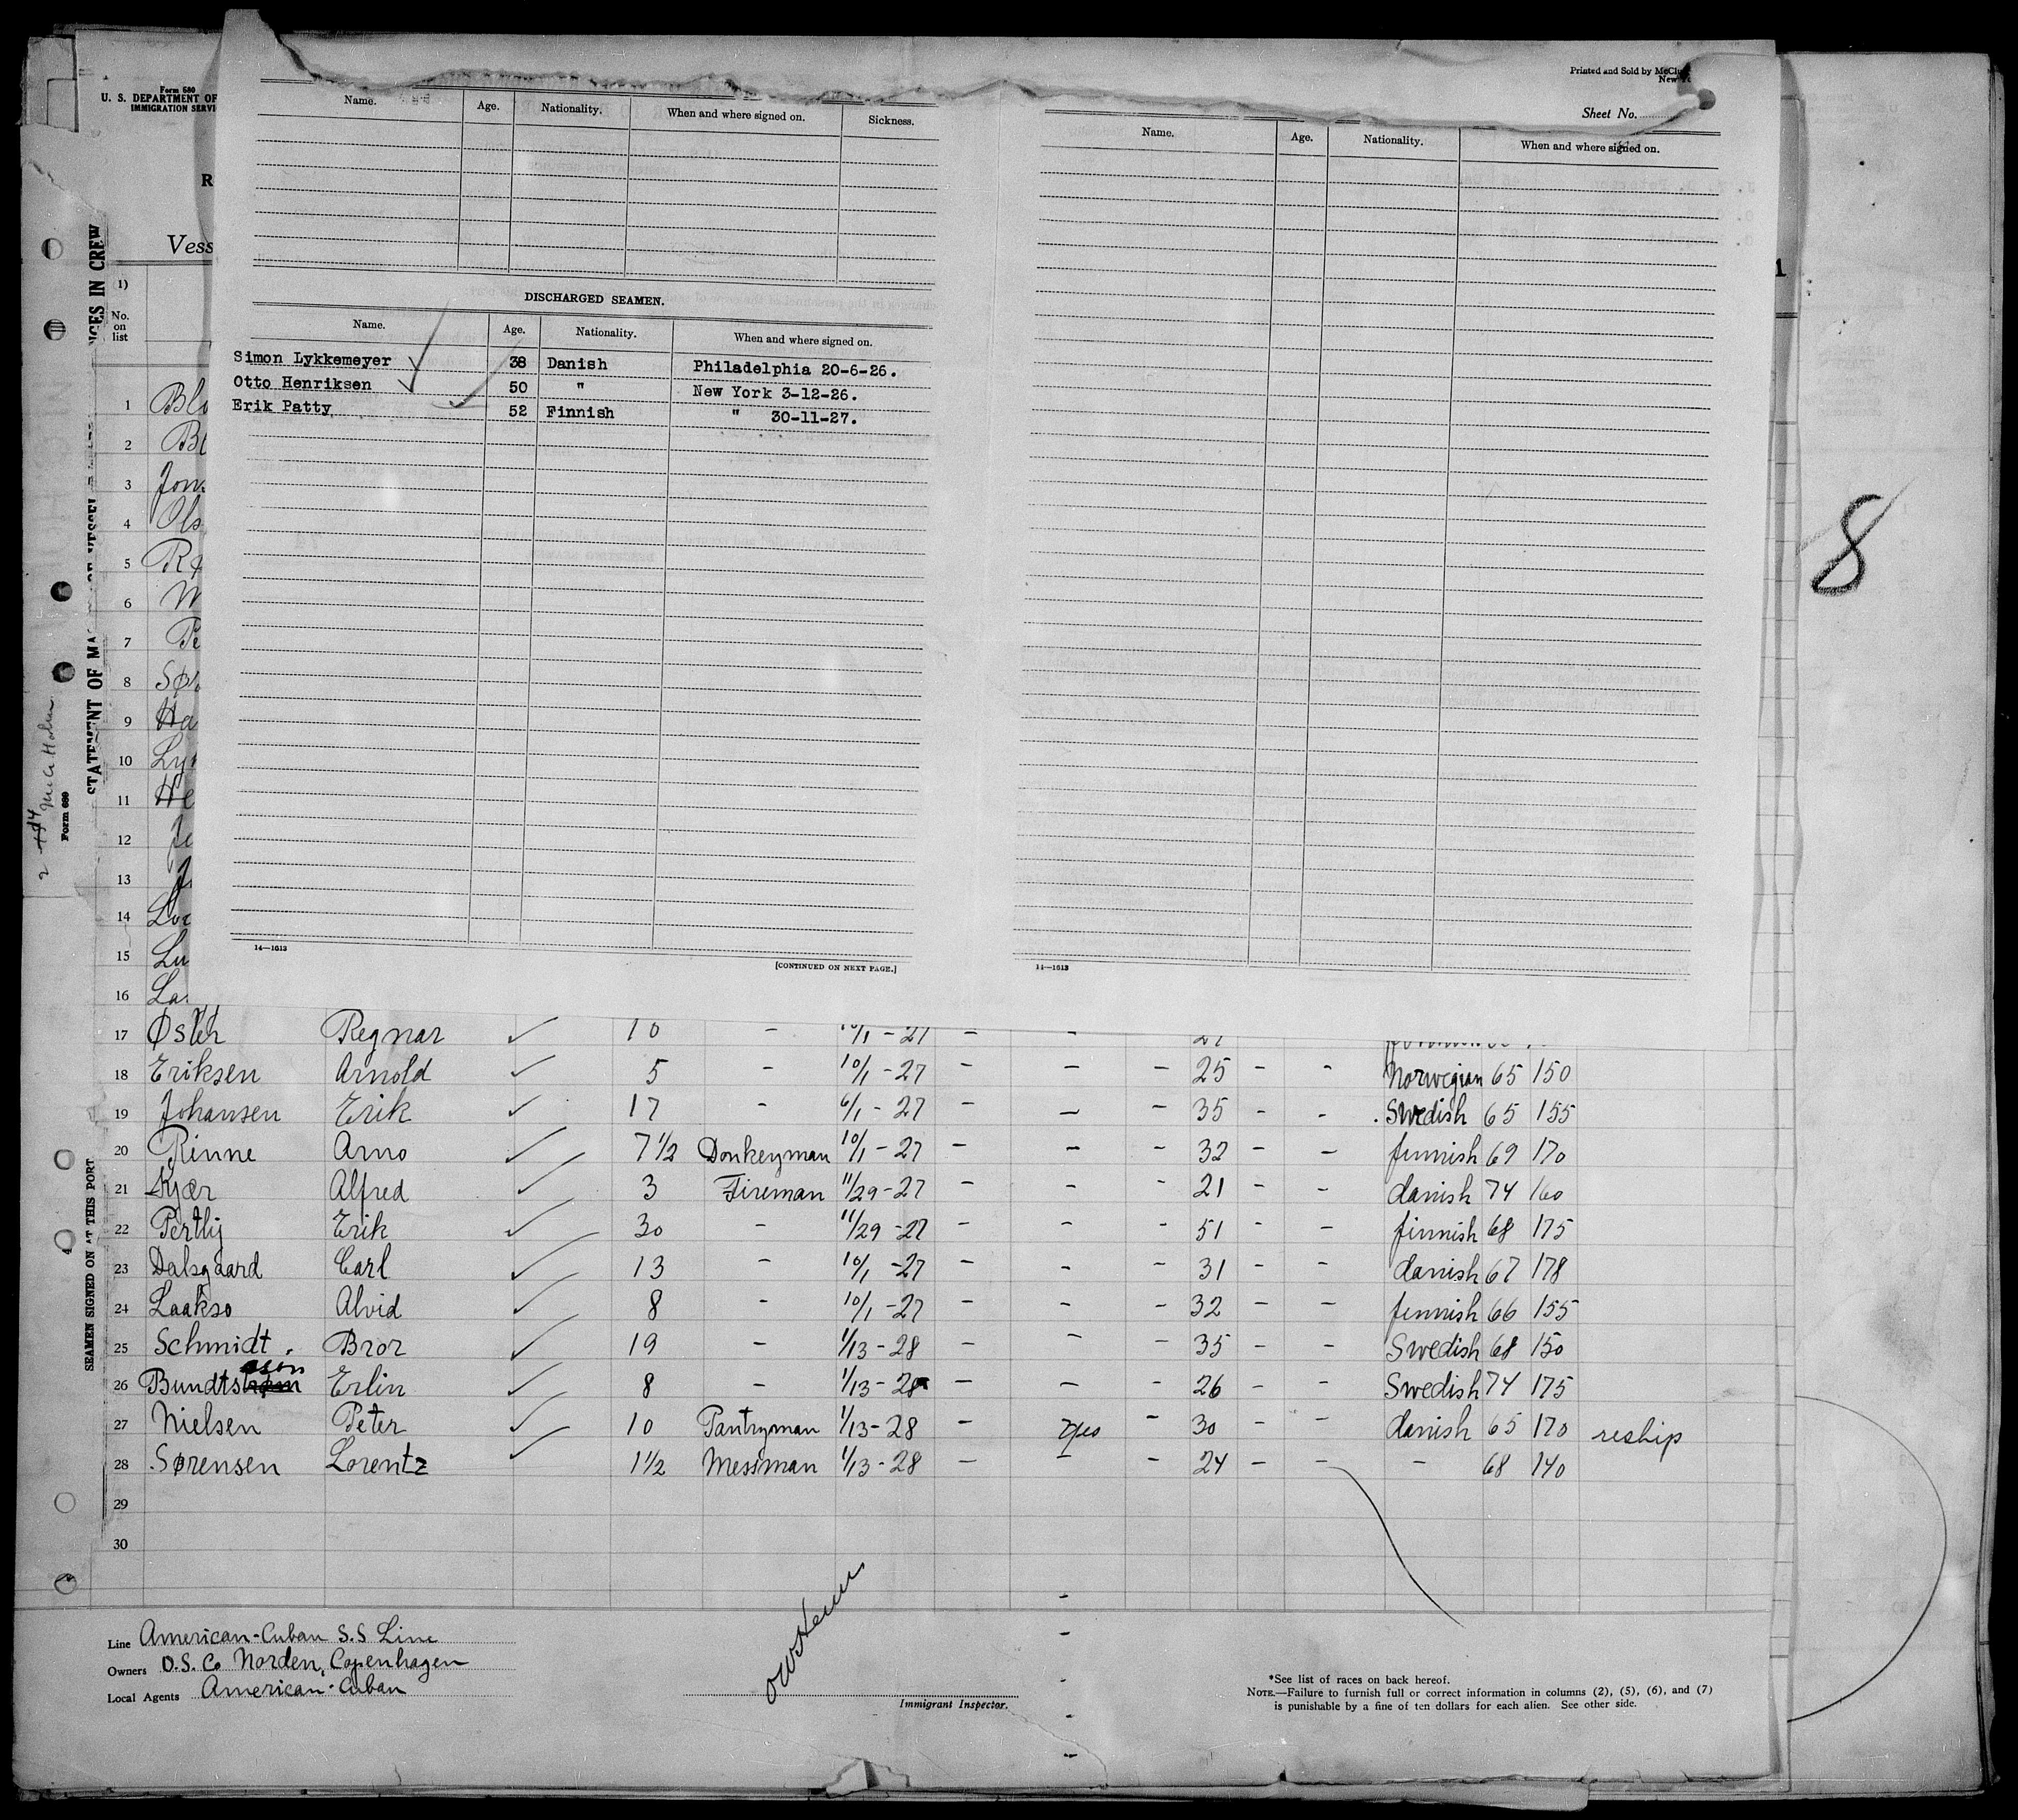 Form 680
U. S. DEPARTMENT OF
IMMIGRATION SERVI
Printed and Sold by McCl
New Yo
Sheet No.
Name. Age. Nationality. When and where signed on. Sickness.
Name. Age. Nationality. When and where signed on.
R
Vess
1)
No.
on
list
DISCHARGED SEAMEN.
Name. Age. Nationality. When and where signed on.
Simon Lykkemeyer 38 Danish Philadelphia 20-6-26.
Otto Henriksen 50 " New York 3-12-26.
Erik Patty 52 Finnish " 30-11-27.
1 Blo
2 Bl
3 Jon
4 Ols
5 R
6 M
7 Pe
8 Sør
9 Ha
10 Lyn
11 He
12 Je
13 J
14 Lo
15 Lu
16 La
14—1613
[CONTINUED ON NEXT PAGE.]
14—1613
17 Øster Regnar 10 - 10/1 - 27 - - 27
18 Eriksen Arnold 5 - 10/1 - 27 - - - 25 - - Norwegian 65 150
19 Johansen Erik 17 - 6/1 - 27 - - 35 - - Swedish 65 155
20 Rinne Arno 7 1/2 Donkeyman 10/1 - 27 - - - 32 - - finnish 69 170
21 Kjær Alfred 3 Fireman 11/29 - 27 - - - 21 - - danish 74 160
22 Pertly Erik 30 - 11/29 - 27 - - - 51 - - finnish 68 175
23 Dalsgaard Carl 13 - 10/1 - 27 - - - 31 - - danish 67 178
24 Laakso Alvid 8 - 10/1 - 27 - - - 32 - - finnish 66 155
25 Schmidt Bror 19 - 1/13 - 28 - - - 35 - - Swedish 68 150
26 Bundtsson Erlin 8 - 1/13 - 28 - - - 26 - - Swedish 74 175
27 Nielsen Peter 10 Pantryman 1/13 - 28 - yes - 30 - - danish 65 170 reship
28 Sørensen Lorentz 1 1/2 Messman 1/13 - 28 - - - 24 - - - 68 140
29
30
Line American-Cuban S.S Line
Owners D.S. Co Norden, Copenhagen
Local Agents American-Cuban
Immigrant Inspector.
*See list of races on back hereof.
NOTE.—Failure to furnish full or correct information in columns (2), (5), (6), and (7)
is punishable by a fine of ten dollars for each alien. See other side.
STATEMENT OF MA
NGES IN CREW
SEAMEN SIGNED ON AT THIS PORT
Form 680
8
1